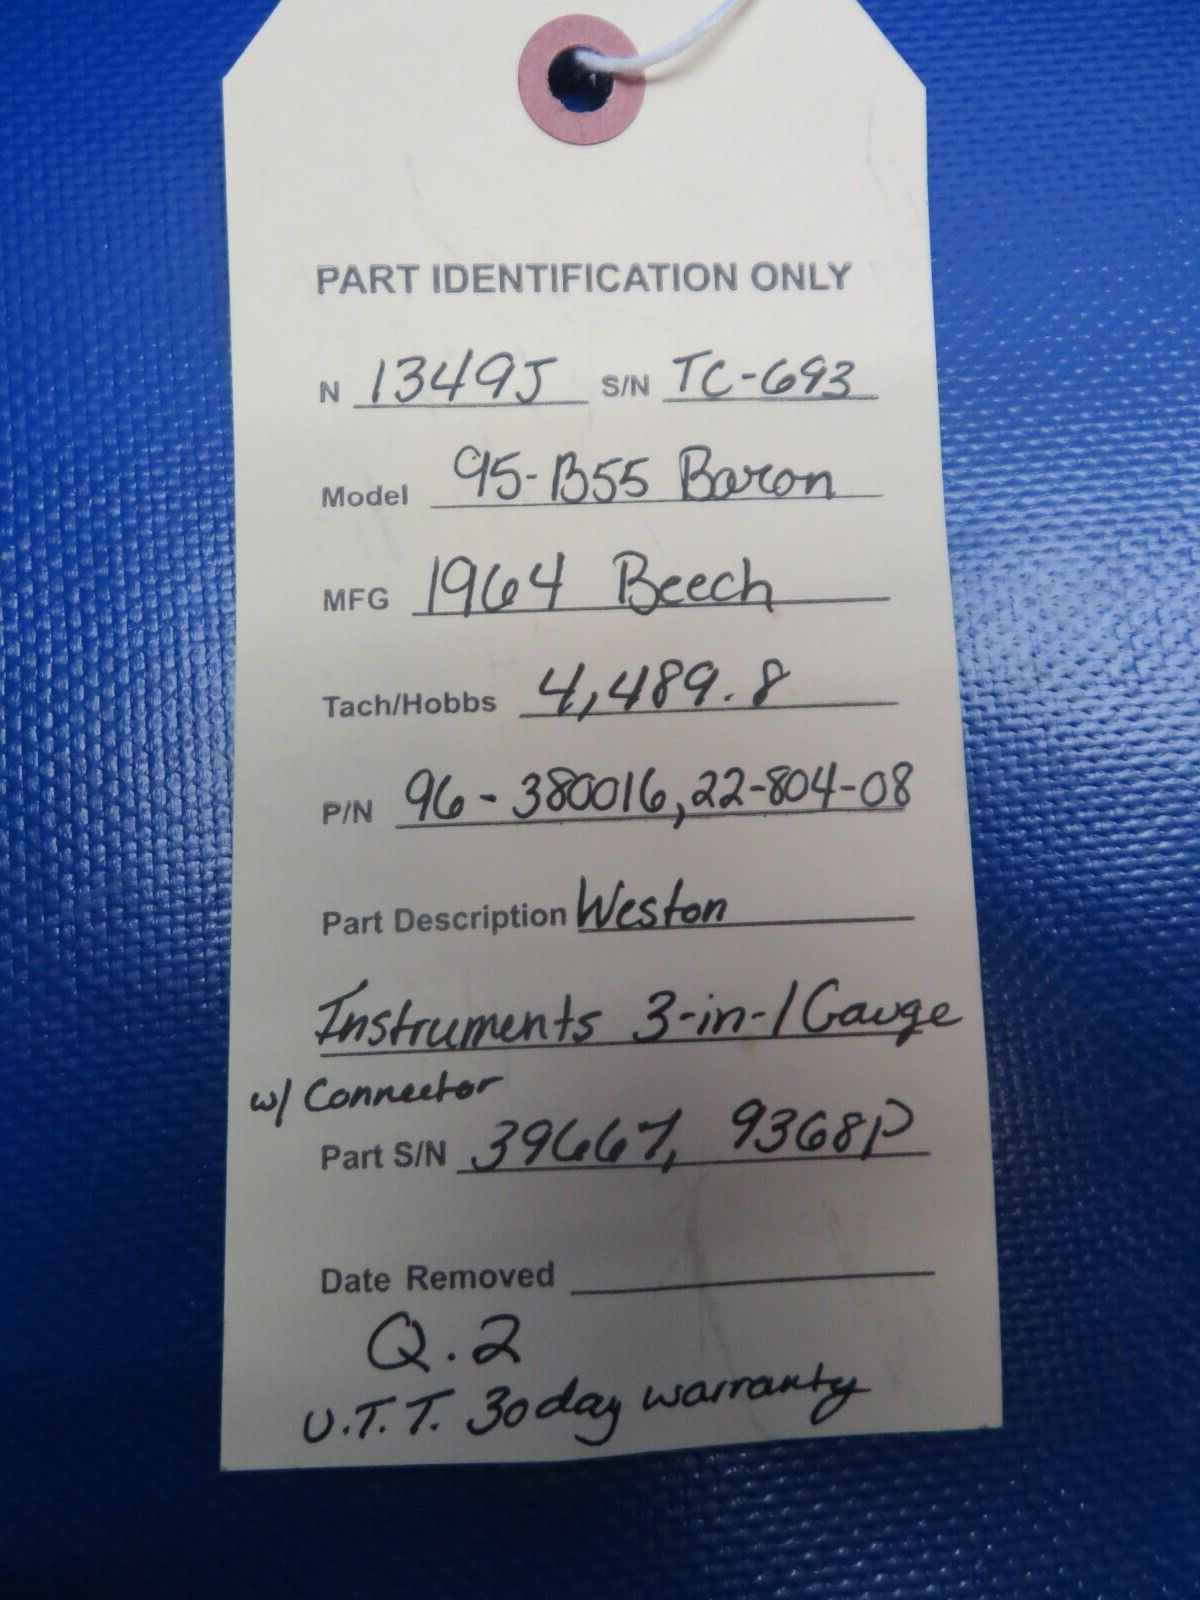 PART IDENTIFICATION ONLY
N 1349J S/N TC-693
Model 95-B55 Baron
MFG 1964 Beech
Tach/Hobbs 4,489.8
P/N 96-380016,22-804-08
Part Description Weston
Instruments 3-in-1 Gauge
w/ Connector
Part S/N 39667, 9368P
Date Removed
Q.2
U.T.T. 30 day warranty